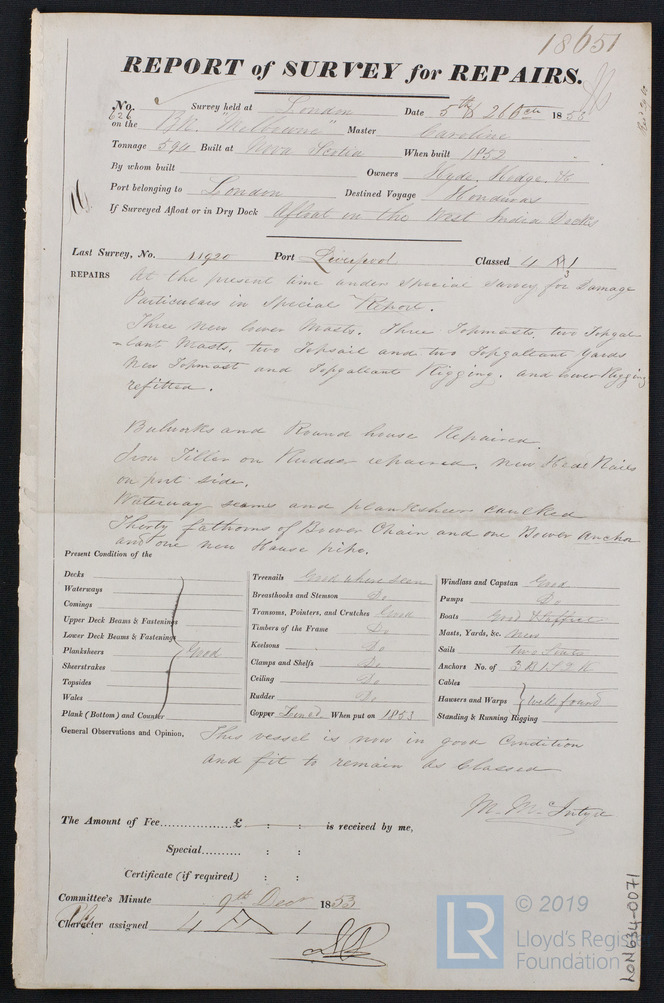 18651
REPORT of SURVEY for REPAIRS.
No. 626 Survey held at London Date 5th & 26 Octr 1853
on the BK. "Melbourne" Master Caroline
Tonnage 594 Built at Nova Scotia When built 1852
By whom built Owners Hyde, Hodge, &
Port belonging to London Destined Voyage Honduras
If Surveyed Afloat or in Dry Dock Afloat in the West India Docks
Last Survey, No. 11920 Port Liverpool Classed 4 A 1
REPAIRS At the present time under special survey for Damage
Particulars in Special Report.
Three new lower Masts. Three Topmasts, two Topgal
-lant Masts, two Topsail and two Topgallant Yards
New Topmast and Topgallant Rigging. and lower Rigging
refitted.
Bulwarks and Round house Repaired.
Iron Tiller on Rudder repaired. New Head Rails
on port side.
Waterway seams and planksheer caulked
Thirty fathoms of Bower Chain and one Bower Anchor
and one new Hause pipe.
Present Condition of the
Decks
Waterways
Comings
Upper Deck Beams & Fastenings
Lower Deck Beams & Fastenings
Planksheers Good
Sheerstrakes
Topsides
Wales
Plank (Bottom) and Counter
Treenails Good where seen
Breasthooks and Stemson Do
Transoms, Pointers, and Crutches Good
Timbers of the Frame Do
Keelsons Do
Clamps and Shelfs Do
Ceiling Do
Rudder Do
Copper When put on 1853
Windlass and Capstan Good
Pumps Do
Boats Good & suffict
Masts, Yards, &c. New
Sails two Suits
Anchors No. of 3 B 1 S 2 K
Cables
Hausers and Warps well found
Standing & Running Rigging
General Observations and Opinion, This vessel is now in good Condition
and fit to remain as Classed
M. McIntyre
The Amount of Fee.................£ : : is received by me,
Special.......... : :
Certificate (if required) : :
Committee's Minute 9th Decr 1853
Character assigned 4 A 1
LR © 2019
Lloyd's Register
Foundation
LON634-0071